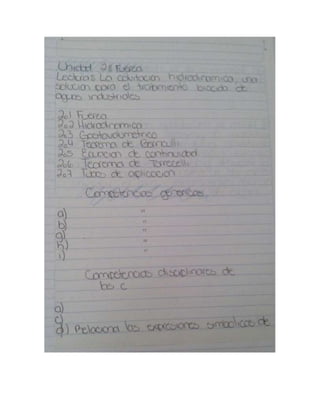 Unidad 2: Fuerza
Lectura: La cavitacion hidrodinamica, una
solucion para el tratamiento biocida de
aguas industriales
2.1 Fuerza
2.2 Hidrodinamica
2.3 Gasto volumetrico
2.4 Teorema de Bernoulli
2.5 Ecuacion de continuidad
2.6 Teorema de Torricelli
2.7 Tubos de aplicacion
Competencias genericas
a) "
b) "
"
h) "
i) "
Competencias disciplinares de
las c
a)
c)
d) Relaciona las expresiones simbolicas de